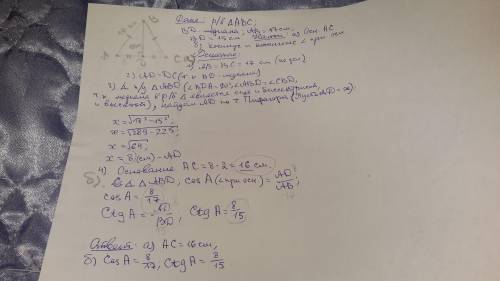 B
A
D
C
Дано: р/б ΔABC;
BD - медиана; AB = 17см
BD = 15см. Найти: а) Осн. AC
б) косинус и котангенс < при осн
Решение:
1) AB = BC = 17 см (по усл)
2) AD = DC (т.к BD - медиана)
3) Δ п/у ΔABD (<BDA = 90°, <ABD = <CBD,
т.к. медиана в р/б Δ является еще и биссектрисой,
и высотой), найдем AD по т Пифагора (Пусть AD = x).
x = √17²-15²;
x = √289-225;
x = √64;
x = 8 (см) - AD
4) Основание AC = 8·2 = 16 см.
б) Δ ABD; cos A (< при осн) = AD/AB;
cos A = 8/17
Ctg A = AD/BD; Ctg A = 8/15
Ответ: а) AC = 16 см;
б) Cos A = 8/17; Ctg A = 8/15